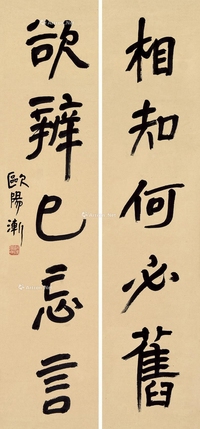 相知何必舊
欲辨已忘言
歐陽漸